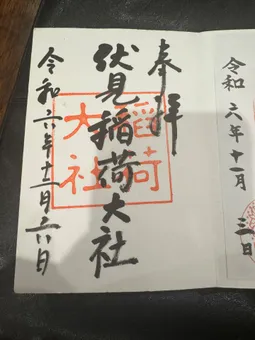 令和六年十一月三日
奉拝
伏見稲荷大社
稲荷
大社
令和六年十一月六日